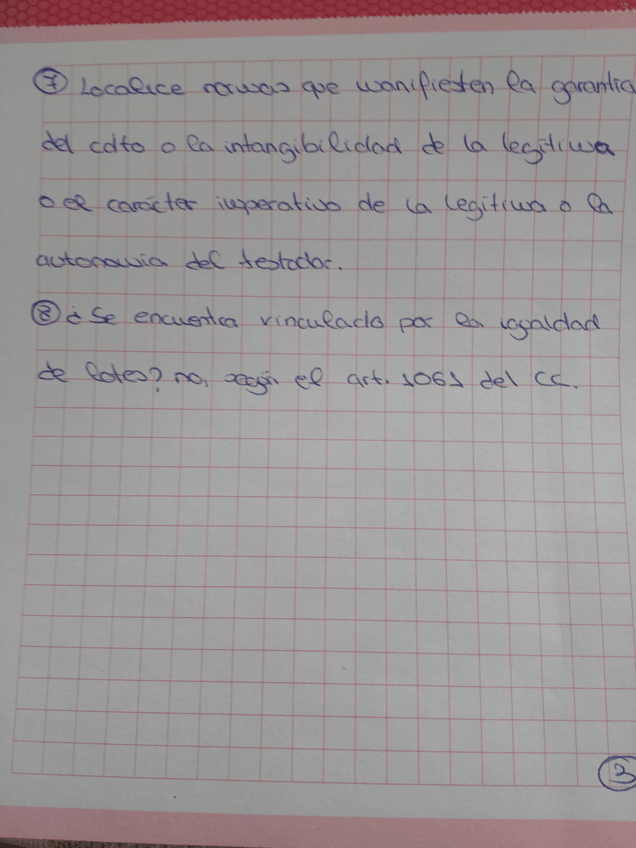 ⑦ Localice normas que manifiesten la garantía
del cdto o la intangibilidad de la legítima
o el carácter imperativo de la legitima o la
autonomía del testador.
⑧ ¿Se encuentra vinculado por la igualdad
de lotes? no, según el art. 1061 del CC.
③